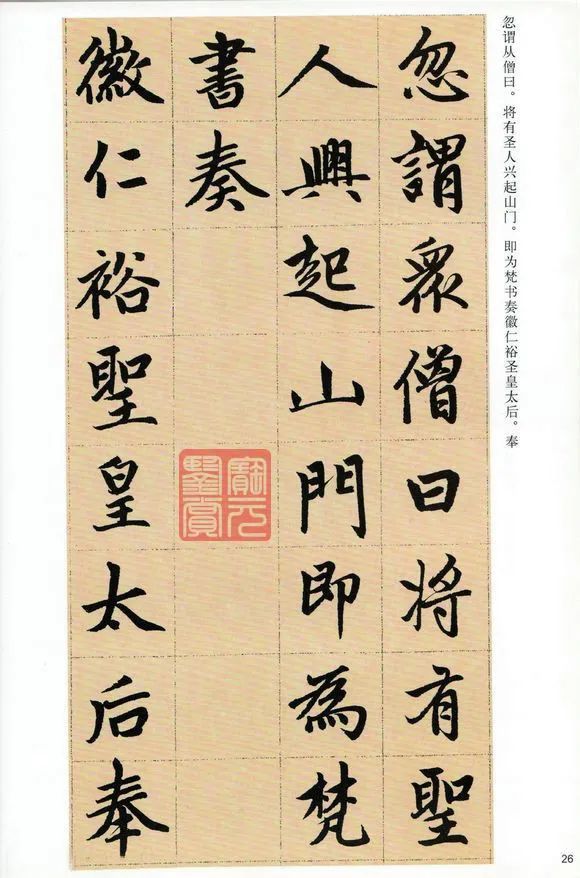 忽谓从僧曰。将有圣人兴起山门。即为梵书奏徽仁裕圣皇太后。奉
忽謂眾僧曰將有聖
人興起山門即為梵
書奏
徽仁裕聖皇太后奉
寶元
鑒賞
26